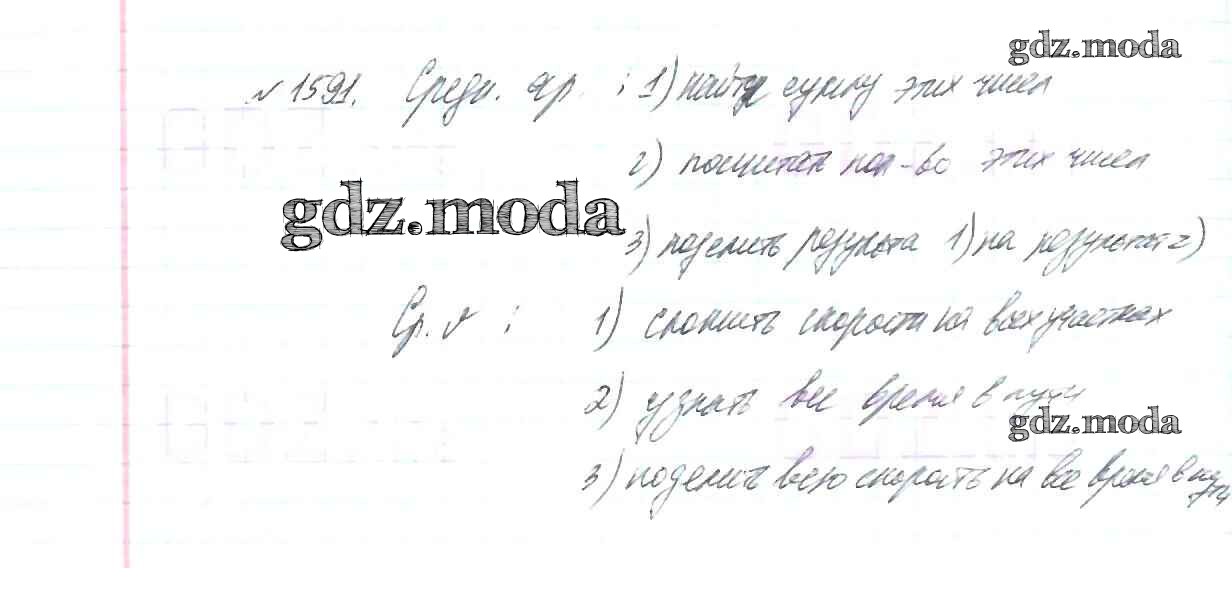 gdz.moda
№1591. Средн. ар. : 1) найти сумму этих чисел
2) посчитать кол-во этих чисел
gdz.moda
3) поделить результа 1) на результат 2)
Ср. v : 1) сложить скорости на всех участках
2) узнать все время в пути
gdz.moda
3) поделить всю скорость на все время в пути